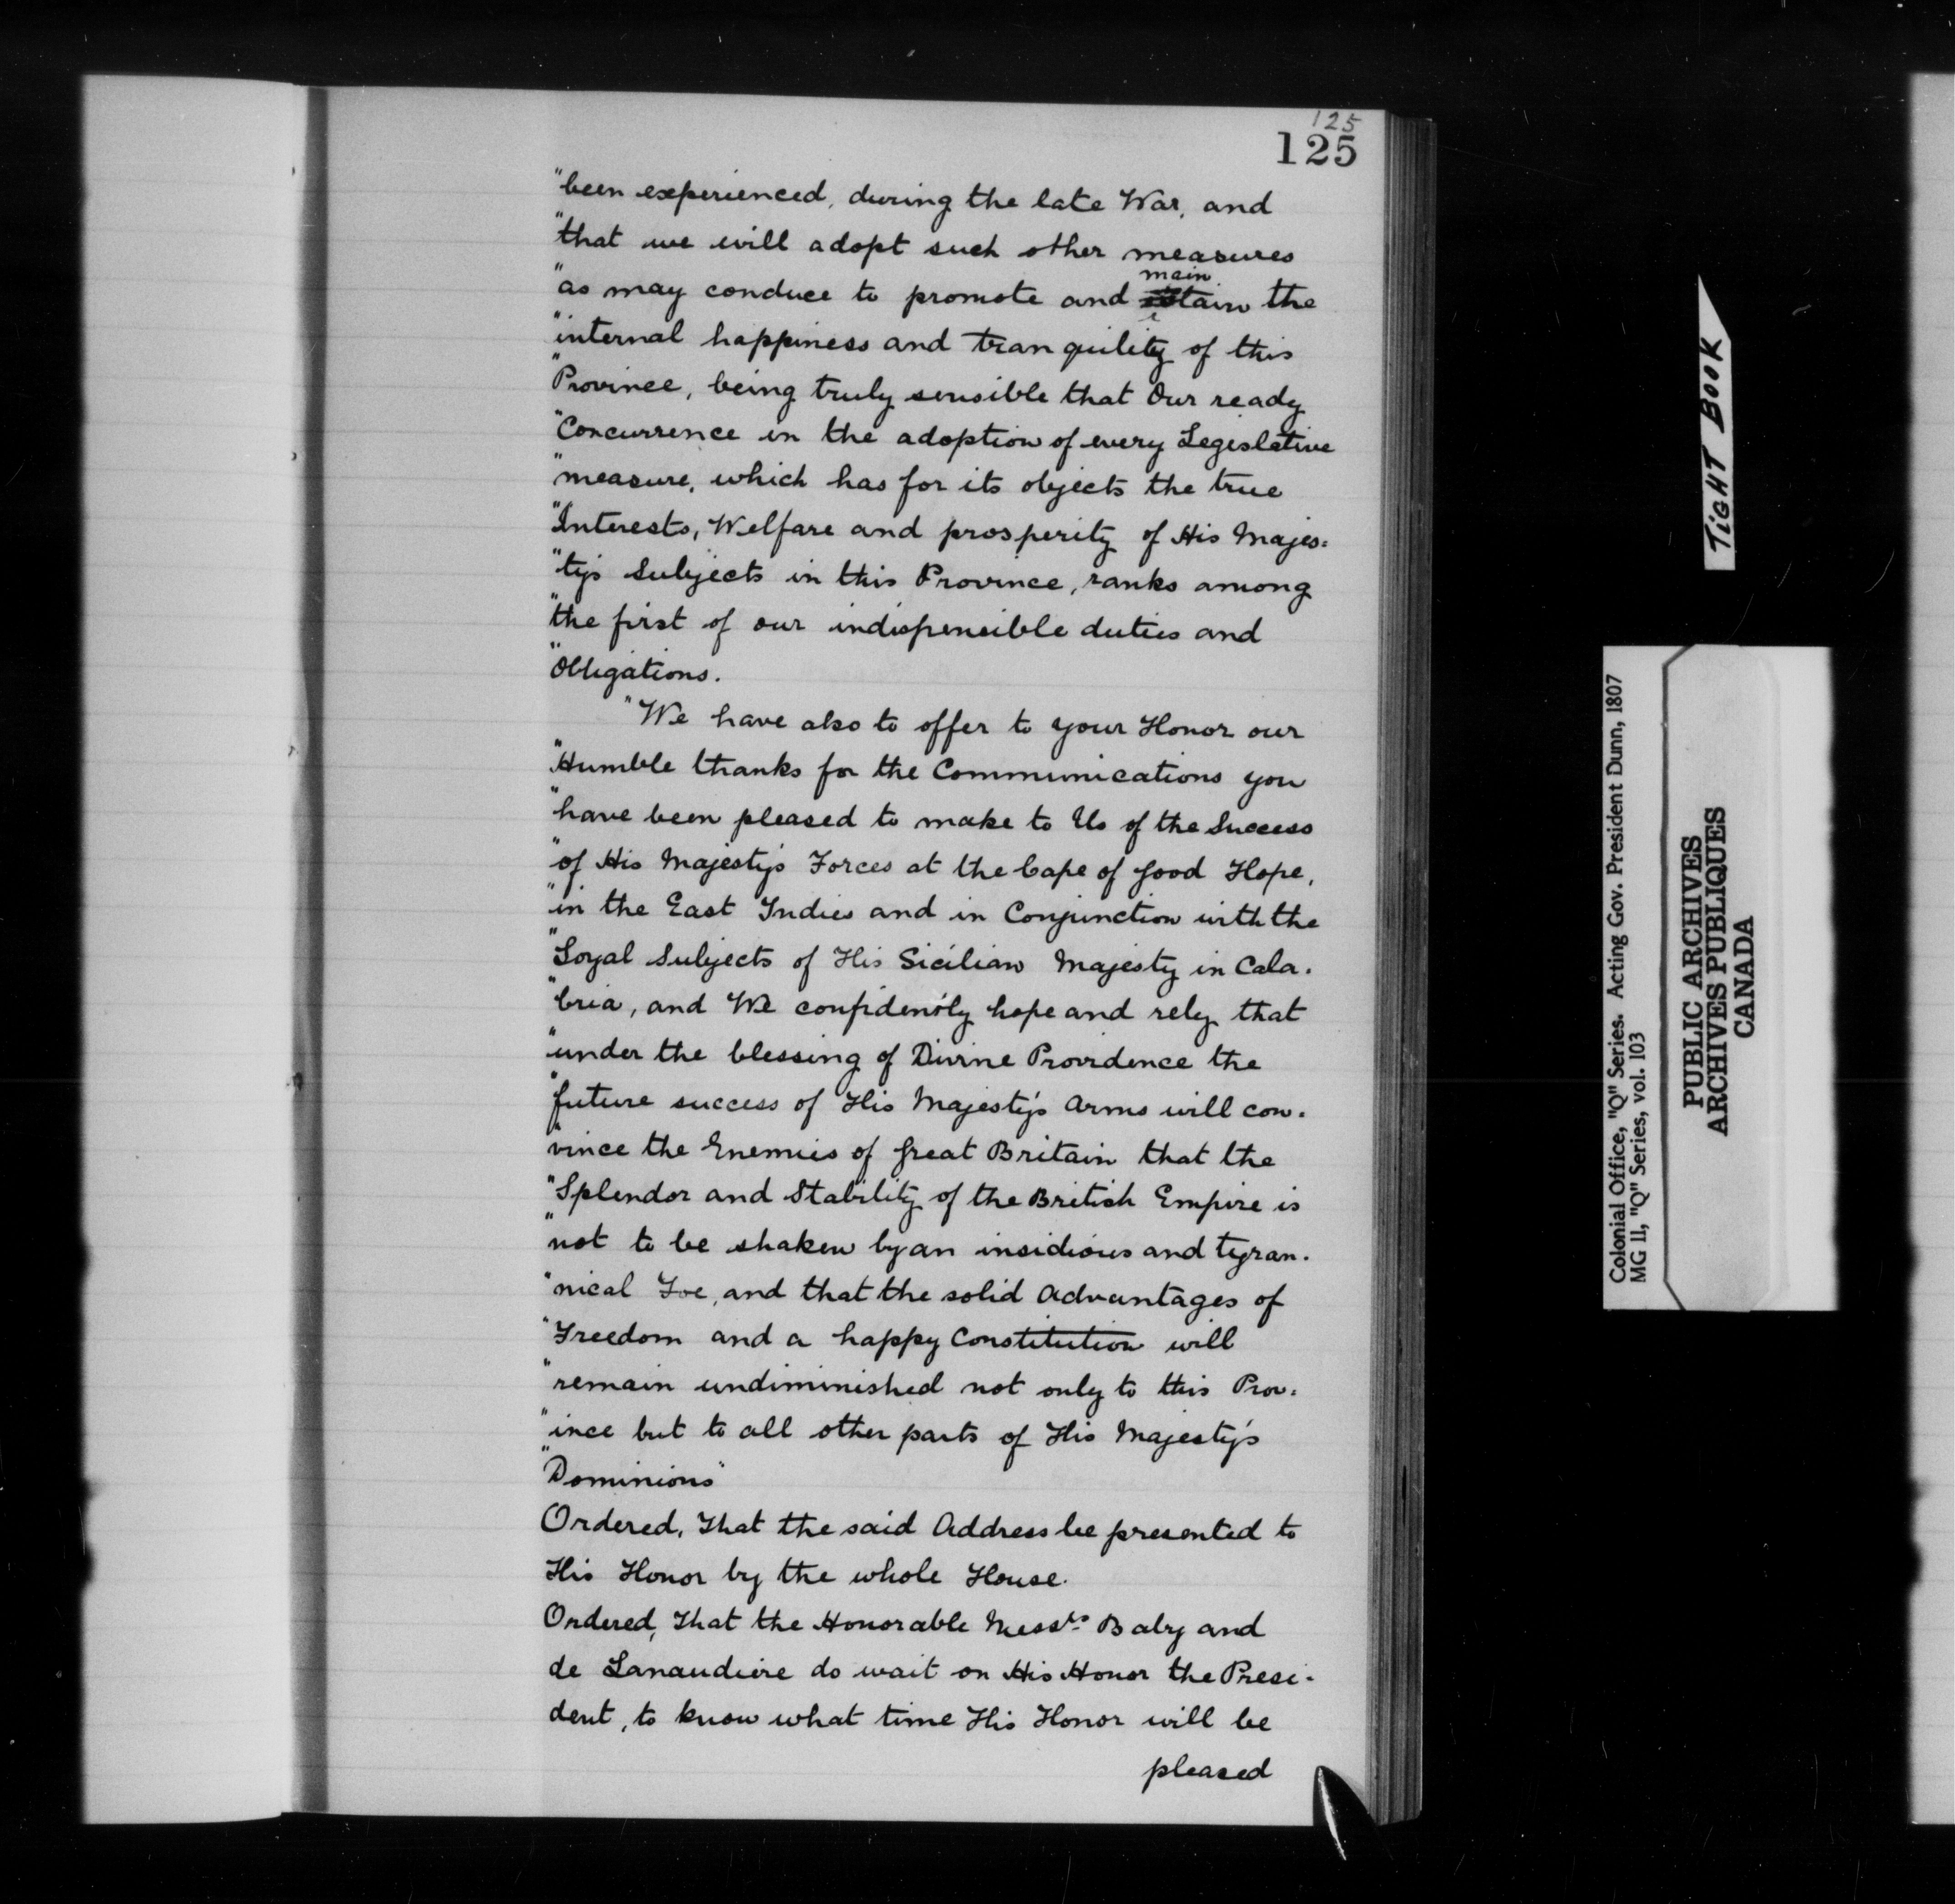 125
125
"been experienced, during the late War, and
"that we will adopt such other measures
main
"as may conduce to promote and tain the
"internal happiness and tranquility of this
"Province, being truly sensible that Our ready
"Concurrence in the adoption of every Legislative
"measure, which has for its objects the true
"Interests, Welfare and prosperity of His Majes=
"ty's Subjects in this Province, ranks among
"the first of our indispensible duties and
"Obligations.
"We have also to offer to your Honor our
"Humble thanks for the Communications you
"have been pleased to make to Us of the Success
"of His Majesty's Forces at the Cape of Good Hope,
"in the East Indies and in Conjunction with the
"Loyal Subjects of His Sicilian Majesty in Cala.
"bria, and We confidently hope and rely that
"under the blessing of Divine Providence the
"future success of His Majesty's Arms will con.
"vince the Enemies of Great Britain that the
"Splendor and Stability of the British Empire is
"not to be shaken by an insidious and tyran.
"nical Foe, and that the solid Advantages of
"Freedom and a happy Constitution will
"remain undiminished not only to this Prov=
"ince but to all other parts of His Majesty's
"Dominions"
Ordered, That the said Address be presented to
His Honor by the whole House.
Ordered, That the Honorable Mess.rs Baby and
de Lanaudiere do wait on His Honor the Presi-
dent, to know what time His Honor will be
pleased
TIGHT BOOK
Colonial Office, "Q" Series. Acting Gov. President Dunn, 1807
MG 11, "Q" Series, vol. 103
PUBLIC ARCHIVES
ARCHIVES PUBLIQUES
CANADA